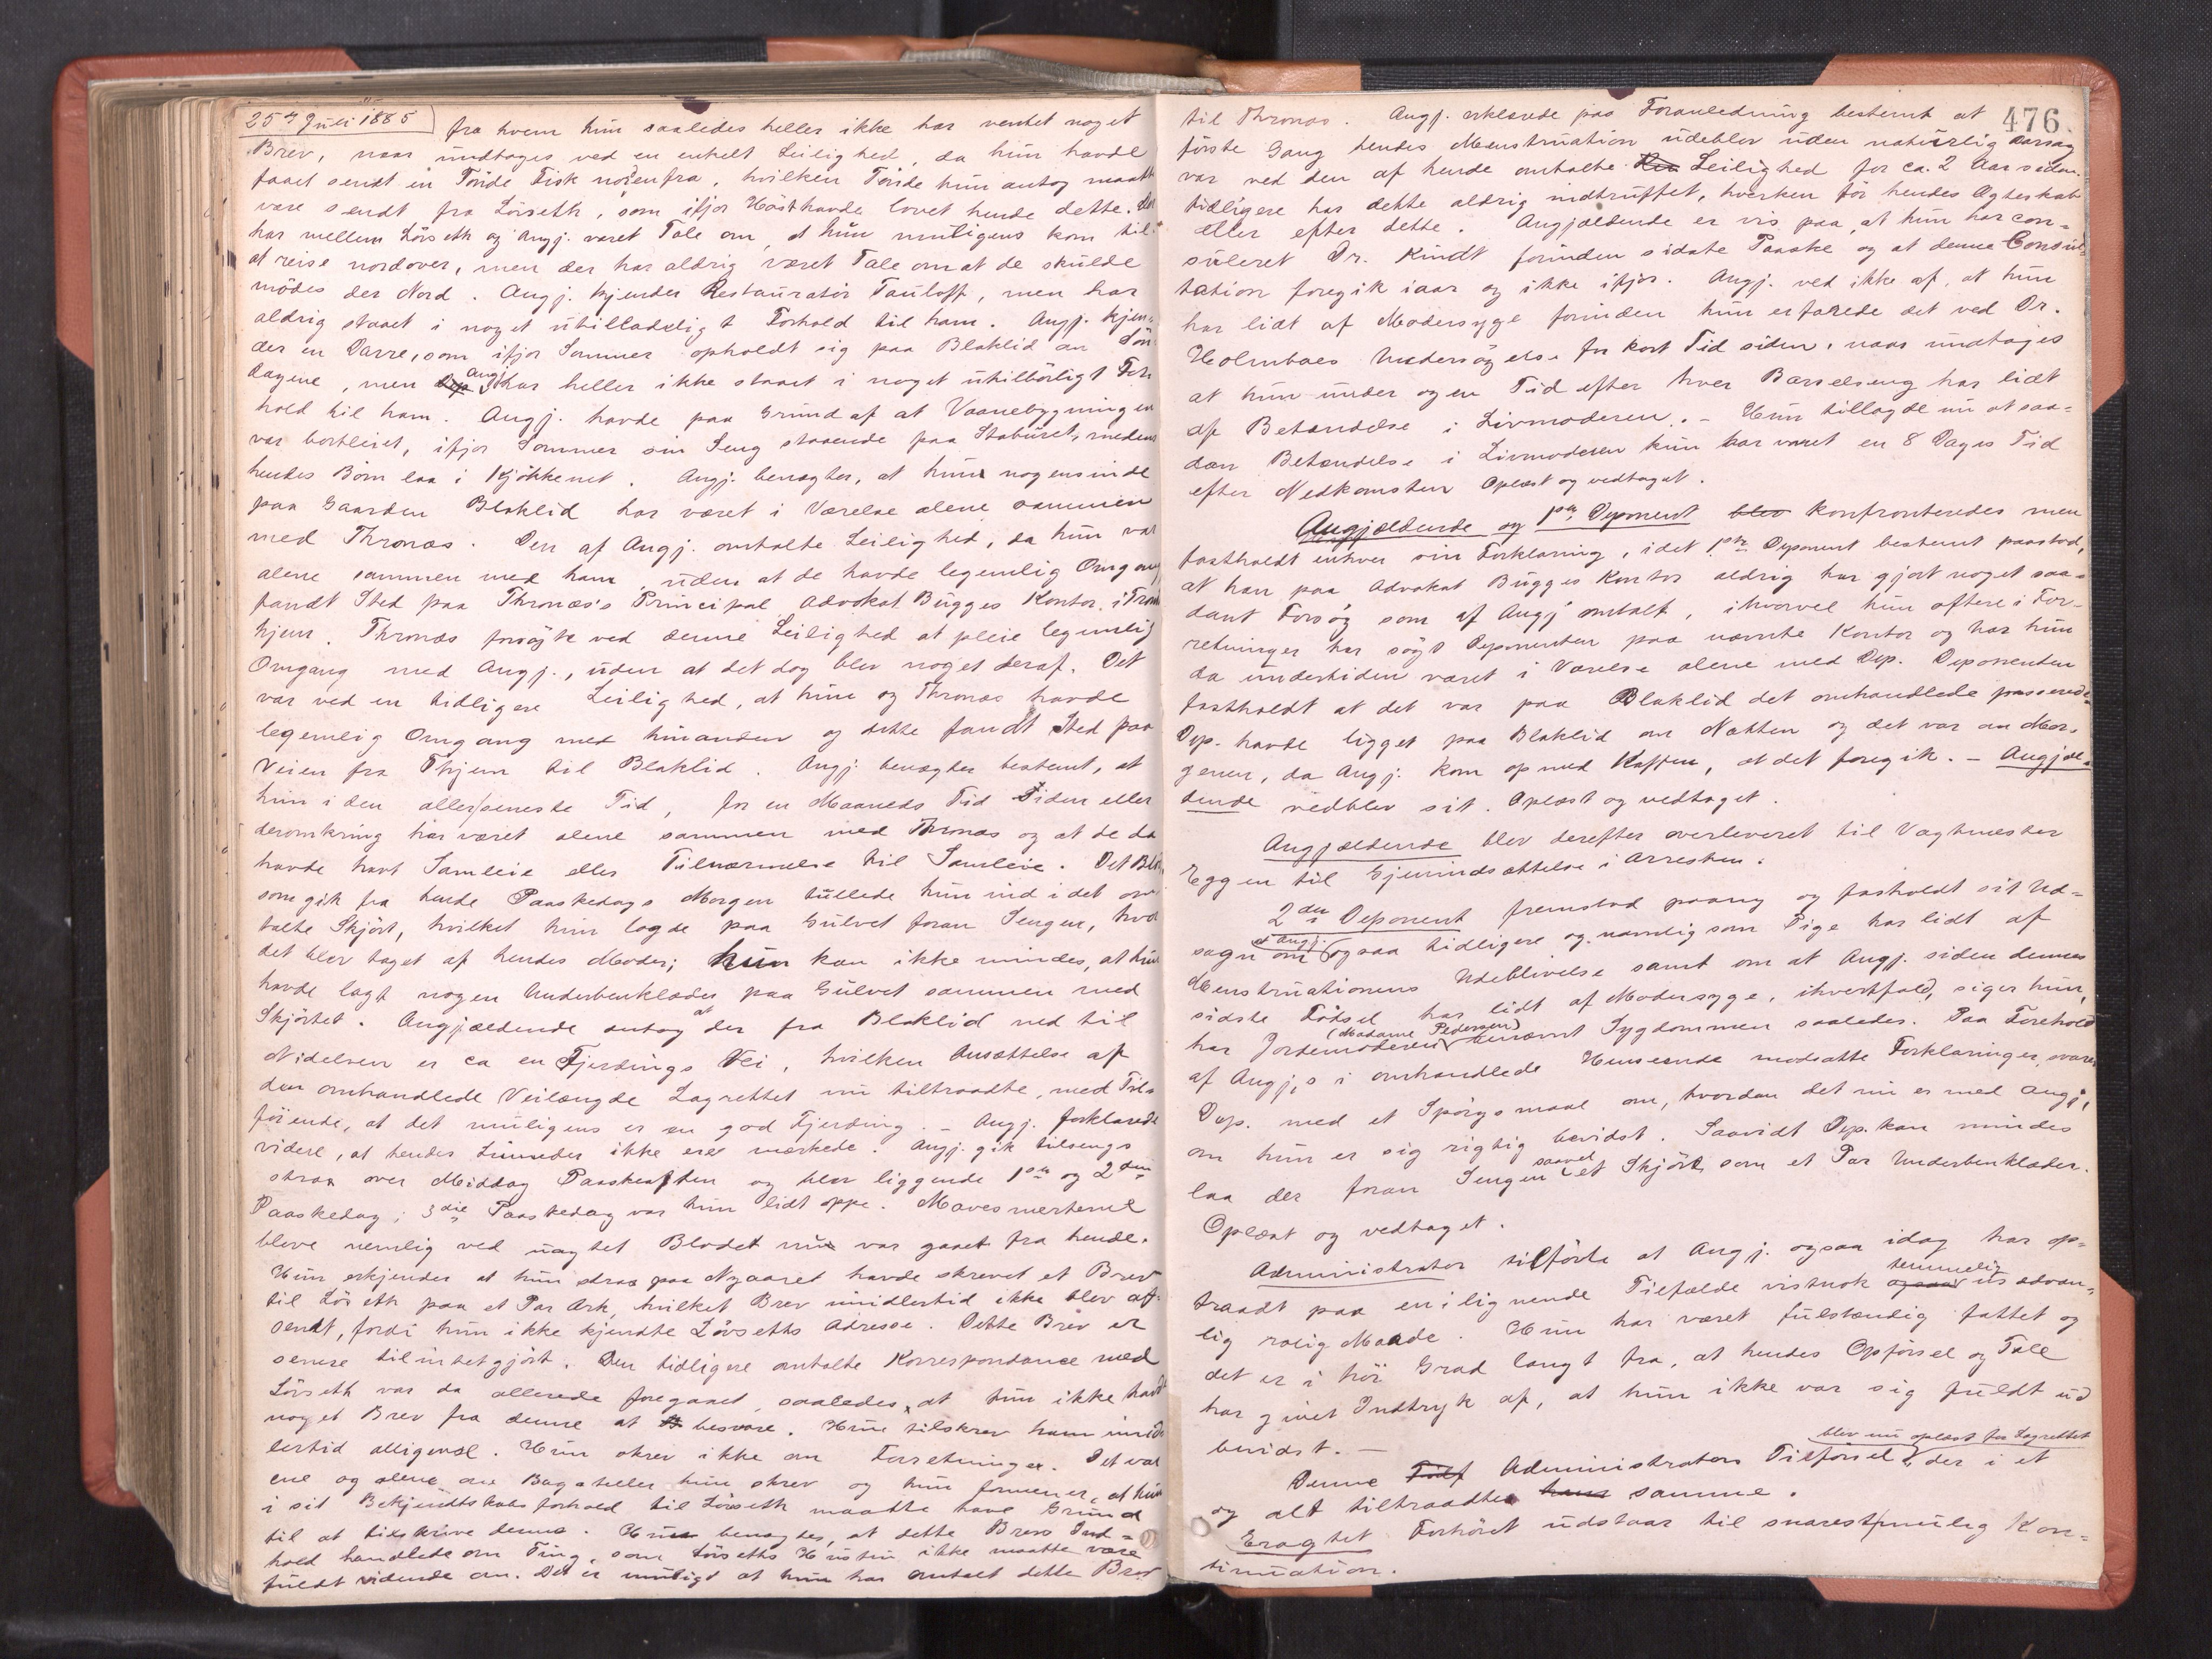 25de Juli 1885
fra hvem hun saaledes heller ikke har ventet noget
Brev, naar undtages ved en enkelt Leilighed, da hun havde
faaet sendt en Tønde Fisk nordenfra, hvilken Tønde hun antog maatte
være sendt fra Løvseth, som ifjor Høst havde lovet hende dette. Der
har mellem Løvseth og Angj. været Tale om, at hun muligens kom til
at reise nordover, men der har aldrig været Tale om at de skulde
mødes der Nord. Angj. kjender Restauratør Tauloff, men har
aldrig staaet i noget utilladeligt Forhold til ham. Angj. kjen-
der en Darre, som ifjor Sommer opholdt sig paa Blaklid om Søn
dagene, men Angj. har heller ikke staaet i noget utilbørligt For
hold til ham. Angj. havde paa Grund af at Vaanebygningen
var bortleiet, ifjor Sommer sin Seng staaende paa Staburet, medens
hendes Børn laa i Kjøkkenet. Angj. benægter, at hun nogensinde
paa Gaarden Blaklid har været i Værelse alene sammen
med Thronæs. Den af Angj. omtalte Leilighed, da hun var
alene sammen med ham, uden at de havde legemlig Omgang
fandt Sted paa Thronæs's Principal Advokat Bugges Kontor i Trond
hjem. Thronæs forsøgte ved denne Leilighed at pleie legemlig
Omgang med Angj., uden at det dog blev noget deraf. Det
var ved en tidligere Leilighed, at hun og Thronæs havde
legemlig Omgang med hinanden og dette fandt Sted paa
Veien fra Thjem til Blaklid. Angj. benægter bestemt, at
hun i den allerseneste Tid, for en Maaneds Tid siden eller
deromkring har været alene sammen med Thronæs og at de da
havde havt Samleie eller Tilnærmelse til Samleie. Det Blod,
som gik fra hende Paaskedags Morgen tullede hun ind i det om
talte Skjørt, hvilket hun lagde paa Gulvet foran Sengen, hvor
det blev taget af hendes Moder; hun kan ikke mindes, at hun
havde lagt nogen Underbenklæder paa Gulvet sammen med
Skjørtet. Angjældende antog at der fra Blaklid ned til
Nidelven er ca en Fjerdings Vei, hvilken Ansættelse af
den omhandlede Veilængde Lagrettet nu tiltraadte, med Til-
føiende, at det muligens er en god Fjerding. - Angj. forklarede
videre, at hendes Linneder ikke ere mærkede. Angj. gik tilsengs
strax over Middag Paaskeaften og blev liggende 1ste og 2den
Paaskedag; 3die Paaskedag var hun lidt oppe. Mavesmerterne
bleve nemlig ved uagtet Blodet nu var gaaet fra hende.
Hun erkjender at hun strax paa Nyaaret havde skrevet et Brev
til Løvseth paa et Par Ark, hvilket Brev imidlertid ikke blev af-
sendt, fordi hun ikke kjendte Løvseths Adresse. Dette Brev er
senere tilintetgjort. Den tidligere omtalte Korrespondance med
Løvseth var da allerede foregaaet, saaledes at hun ikke havde
noget Brev fra denne at besvare. Hun tilskrev ham imid-
lertid alligevel. Hun skrev ikke om Forretninger. Det var
ene og alene om Bagateller hun skrev og hun formener, at hun
i sit Bekjendtskabsforhold til Løvseth maatte have Grund
til at tilskrive denne. Hun benægter, at dette Brevs Ind-
hold handlede om Ting, som Løvseths Hustru ikke maatte være
fuldt vidende om. Det er muligt at hun har omtalt dette Brev
476
til Thronæs. Angj. erklærede paa Foranledning bestemt at
første Gang hendes Menstruation udeblev uden naturlig Aarsag
var ved den af hende omtalte Leilighed for ca. 2 Aar siden.
tidligere har dette aldrig indtruffet, hverken før hendes Ægteskab
eller efter dette. Angjældende er vis paa, at hun har con-
suleret Dr. Kindt forinden sidste Paaske og at denne Consul-
tation foregik iaar og ikke ifjor. Angj. ved ikke af, at hun
har lidt af Modersyge forinden hun erfarede det ved Dr.
Holmboes Undersøgelse for kort Tid siden, naar undtages
at hun under og en Tid efter hver Barselseng har lidt
af Betændelse i Livmoderen. - Hun tillagde nu at saa-
dan Betændelse i Livmoderen kun har varet en 8 Dages Tid
efter Nedkomsten Oplæst og vedtaget.
Angjældende og 1ste Deponent blev konfronteredes men
fastholdt enhver sin Forklaring, idet 1ste Deponent bestemt paastod,
at han paa Advokat Bugges Kontor aldrig har gjort noget saa-
dant Forsøg som af Angj. omtalt, ihvorvel hun oftere i For-
retninger har søgt Deponenten paa nævnte Kontor og har hun
da undertiden været i Værelse alene med Dep. Deponenten
fastholdt at det var paa Blaklid det omhandlede passerede
Dep. havde ligget paa Blaklid om Natten og det var om Mor-
genen, da Angj. kom op med Kaffen, at det foregik. - Angjæl-
dende vedblev sit. Oplæst og vedtaget.
Angjældende blev derefter overleveret til Vagtmester
Eggen til Gjenindsættelse i Arresten.
2den Deponent fremstod paany og fastholdt sit Ud-
sagn om at Angj. ogsaa tidligere og navnlig som Pige har lidt af
Menstruationens Udeblivelse samt om at Angj. siden dennes
sidste Fødsel har lidt af Modersyge, ihvertfald, siger hun,
har Jordemoderen (Madame Pedersen) benævnt Sygdommen saaledes. Paa Forehold
af Angj,s i omhandlede Henseende modsatte Forklaringer, svarer
Dep. med et Spørgsmaal om, hvordan det nu er med Angj.,
om hun er sig rigtig bevidst. Saavidt Dep. kan mindes
laa der foran Sengen saavel et Skjørt som et Par Underbenklæder.
Oplæst og vedtaget.
Administrator tilførte at Angj. ogsaa idag har op-
traadt paa en i lignende Tilfælde vistnok temmelig usædvan-
lig rolig Maade. Hun har været fuldstændig fattet og
det er i høi Grad langt fra, at hendes Opførsel og Tale
har givet Indtryk af, at hun ikke var sig fuldt ud
bevidst. -
Denne Administrators Tilførsel blev nu oplæst for Lagrettet der i et
og alt tiltraadte samme.
Eragtet Forhøret udstaar til snarestmulig Kon-
tinuation.